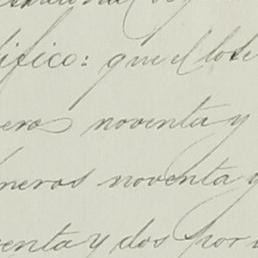 ifico: que el lote
ero noventa y
neros noventa y
venta y dos por